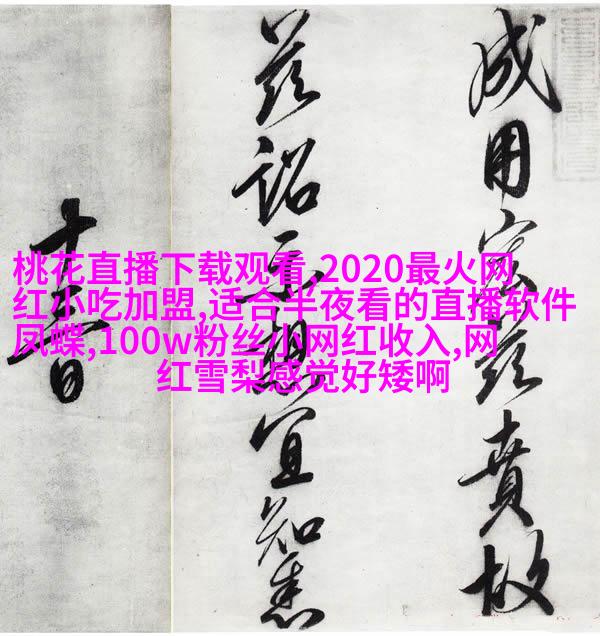 桃花直播下载观看,2020最火网
红小吃加盟,适合半夜看的直播软件
凤蝶,100w粉丝小网红收入,网
红雪梨感觉好矮啊
成用宏茲賁故
茲詔示想宜知悉